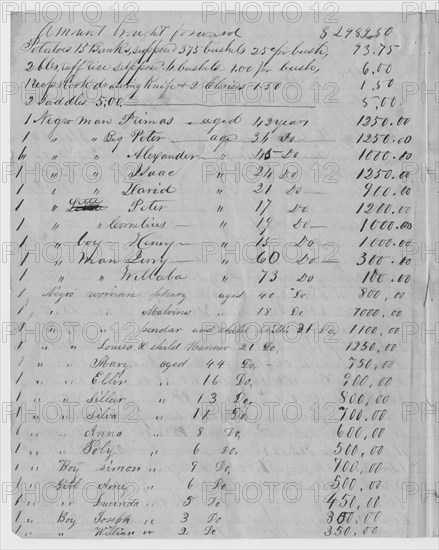 Amount brought forward $2989.50
Potatoes 15 Banks, suppose 375 bushels 25c pr bush, 93.75
2 rice suppose 6 bushels 1.00 pr bush, 6.00
1 drawing Knife & 2 1.50 1.50
2 Saddles 5.00 5.00
1 Negro man Primas aged 42 year 1250.00
1 " " Big Peter age 34 Do 1250.00
" " Alexander " 45 Do 1000.00
1 " " Isaac " 24 Do 1250.00
1 " " David " 21 Do 900.00
1 " Little Peter " 17 Do 1200.00
1 " " Cornelius " 19 Do 1000.00
1 " boy Henry " 15 Do 1000.00
1 " Man Perry " 60 Do 300.00
1 " " " 73 Do 100.00
1 Negro woman aged 40 Do, 800,00
1 " " Malvina " 18 Do, 1000.00
1 " " and child 21 Do, 1100,00
1 " " Louisa & child 21 Do, 1250,00
1 " " Mary aged 44 Do, 750,00
1 " " Ellin " 16 Do, 900,00
1 " " " 13 Do, 800,00
1 " " Silva " 14 Do, 700,00
1 " " Anna " 8 Do, 600,00
1 " " Poly " 6 Do, 500,00
1 " Boy Simon " 9 Do, 700,00
1 " Girl Amy " 6 Do, 500,00
1 " " Lucinda " 5 Do 450,00
1 " Boy Joseph " 3 Do 350.00
1 " " William " 2 Do 350,00